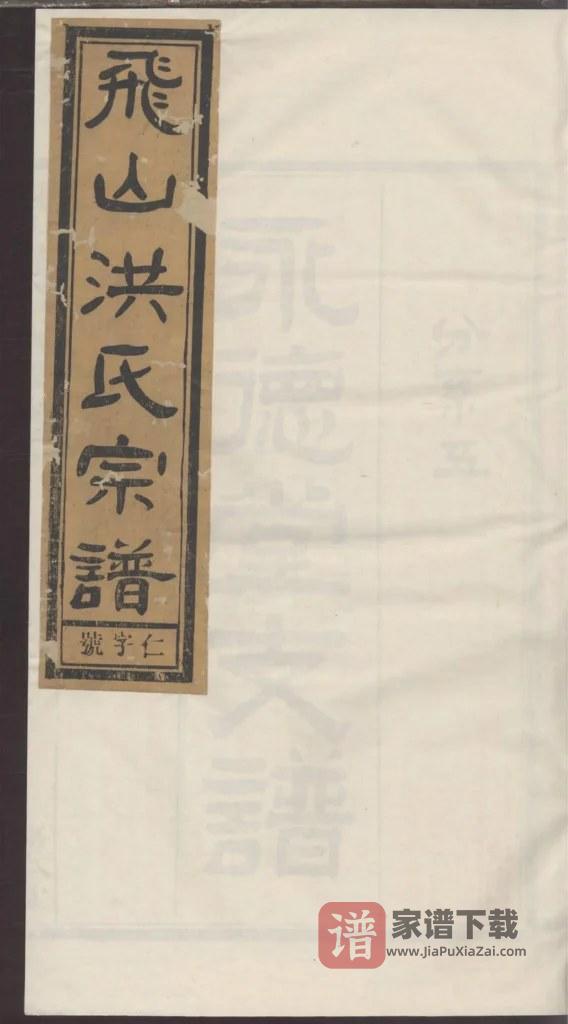 飛山洪氏宗譜
仁字號
永德堂支譜
谱
家谱下载
www.JiaPuXiaZai.com